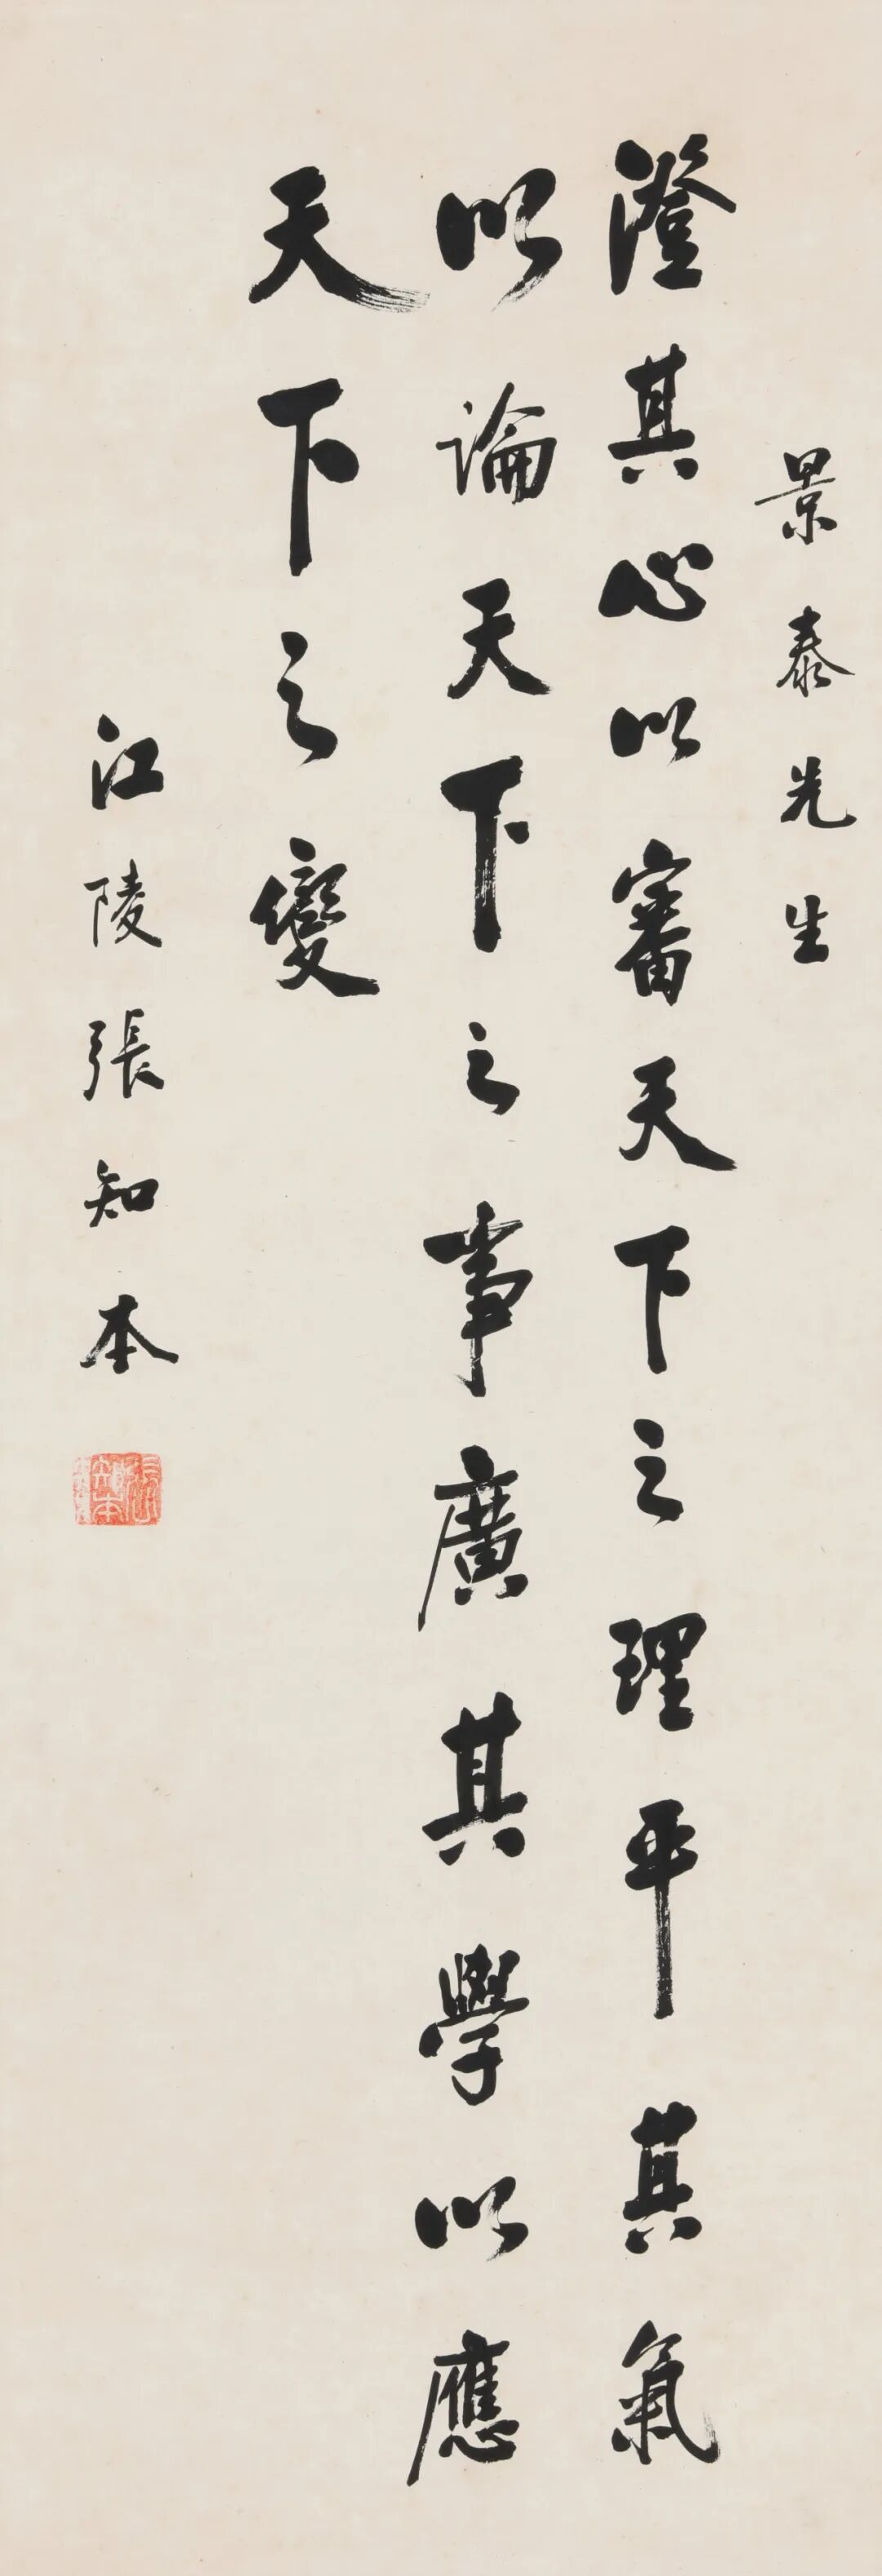 景泰先生
澄其心以審天下之理平其氣
以論天下之事廣其學以應
天下之變
江陵張知本